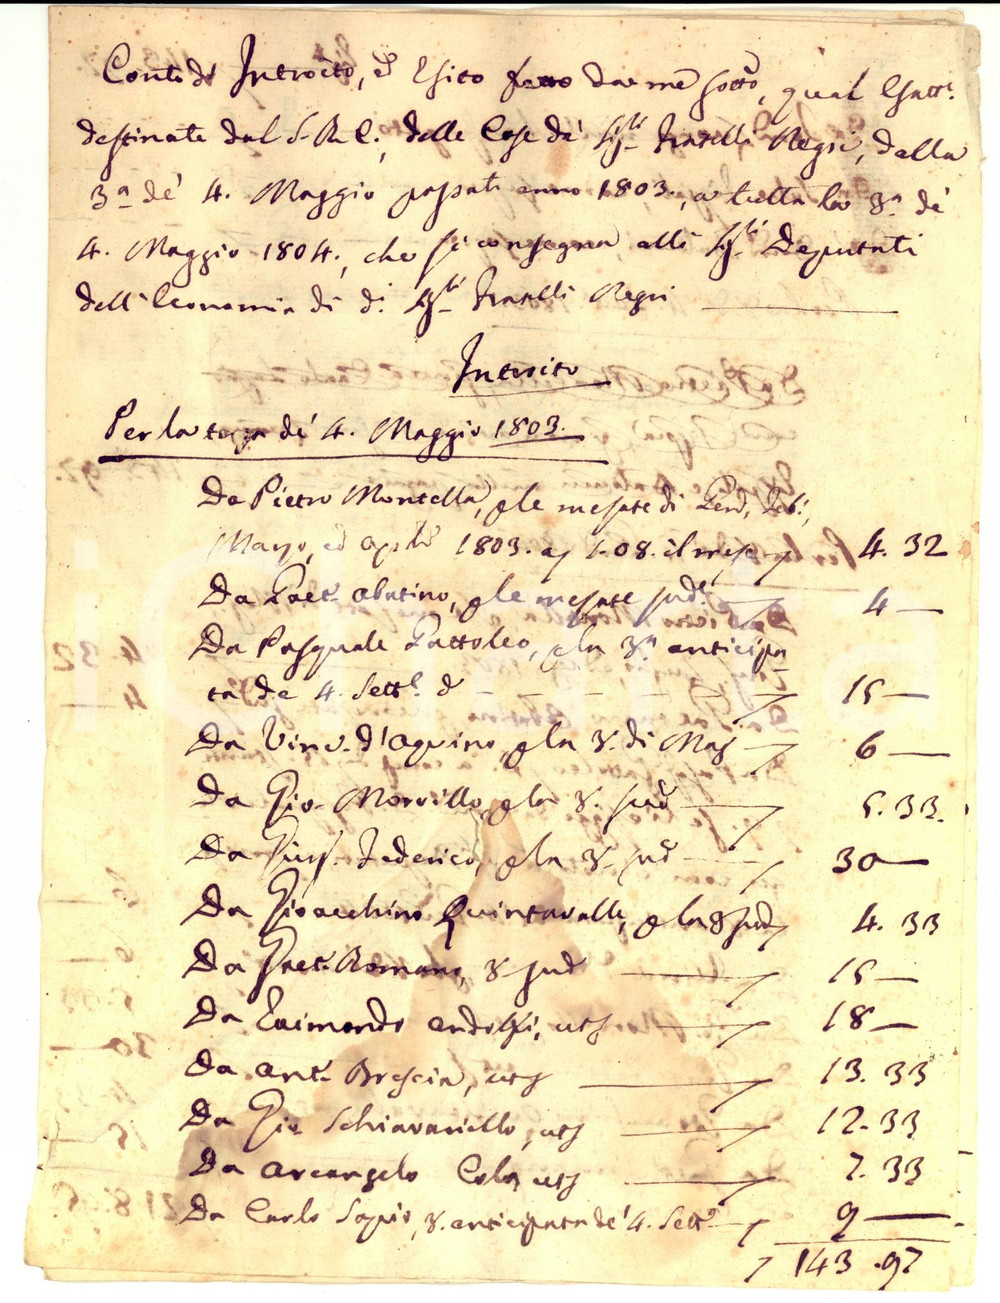 Conto d' Introito, ed Esito fatto da me sotto, qual Esatt.e
destinato dal S. R. C., delle Case de' Sig.ri Fratelli Regii, dalla
3.a de' 4. Maggio passati anno 1803., a tutta la 3.a de'
4. Maggio 1804., che si consegna alli Sig.ri Deputati
dell'Economia di d.i Sig.ri Fratelli Regii
Introito
Per la terza de' 4. Maggio 1803.
Da Pietro Montella, p le mesate di Gen., Feb.,
Marzo, ed Aprile 1803. a 1.08. il mese 4. 32
Da Gaet. Abatino, p le mesate sud.e 4
Da Pasquale Gattoleo, p la 3.a anticipa
ta de 4. Sett.e d 15
Da Vinc. d'Aquino, p la 3. di Mag 6
Da Gio. Morvillo, p la 3. sud 5. 33.
Da Gius. Federico, p la 3. sud 30
Da Gioacchino Quintavalle, p la 3 sud 4. 33
Da Gaet. Romano, 3. sud 15
Da Raimondo Andolfi, uts 18
Da Ant. Brescia, uts 13. 33
Da Gio. Schiavariello, uts 12. 33
Da Arcangelo Cola, uts 7. 33
Da Carlo Sapio, 3. anticipata de' 4. Sett.e 9
143. 97